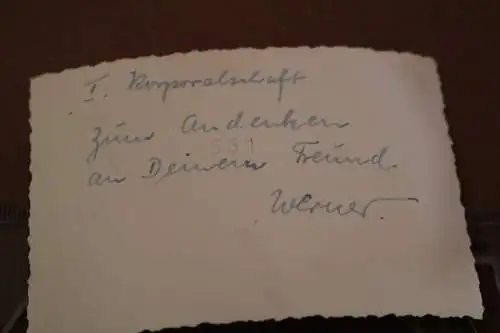 I. Korporalschaft
Zum Andenken
531
an Deinem Freund
Werner.